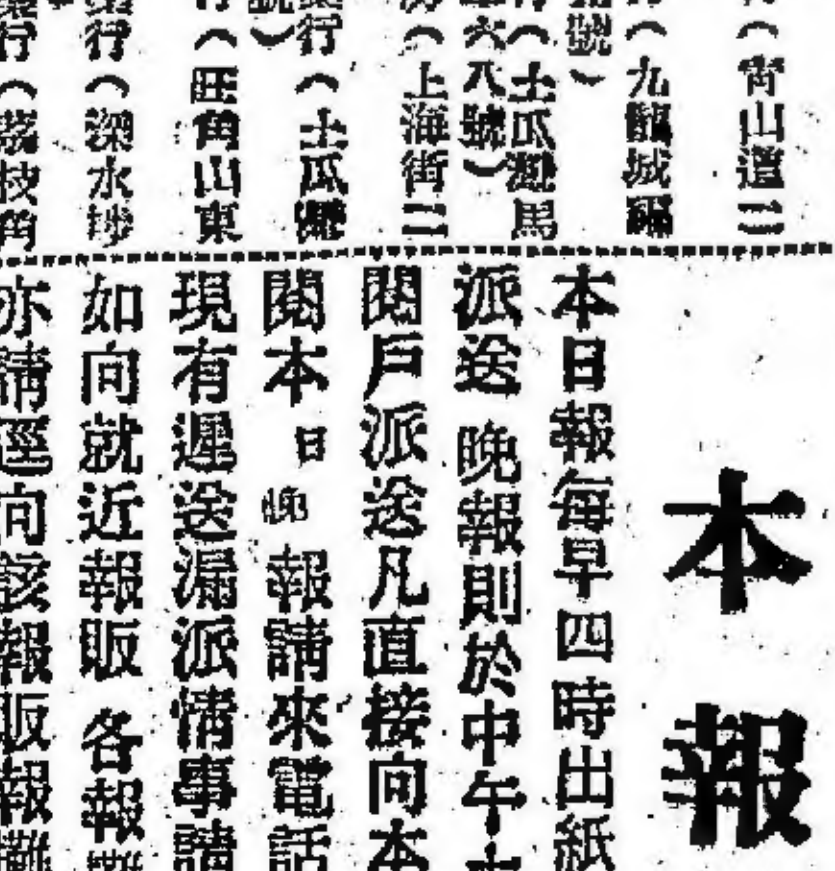 （青山道二
（九龍城福
號）
（土瓜灣馬
六八號）
（上海街二
行（土瓜灣
號）
（旺角山東
行（深水埗
行（荔枝角
本報
本日報每早四時出紙
派送 晚報則於中午十
閱戶派送凡直接向本
閱本日晚報請來電話
現有遲送漏派情事請
如向就近報販 各報攤
亦請逕向該報販報攤